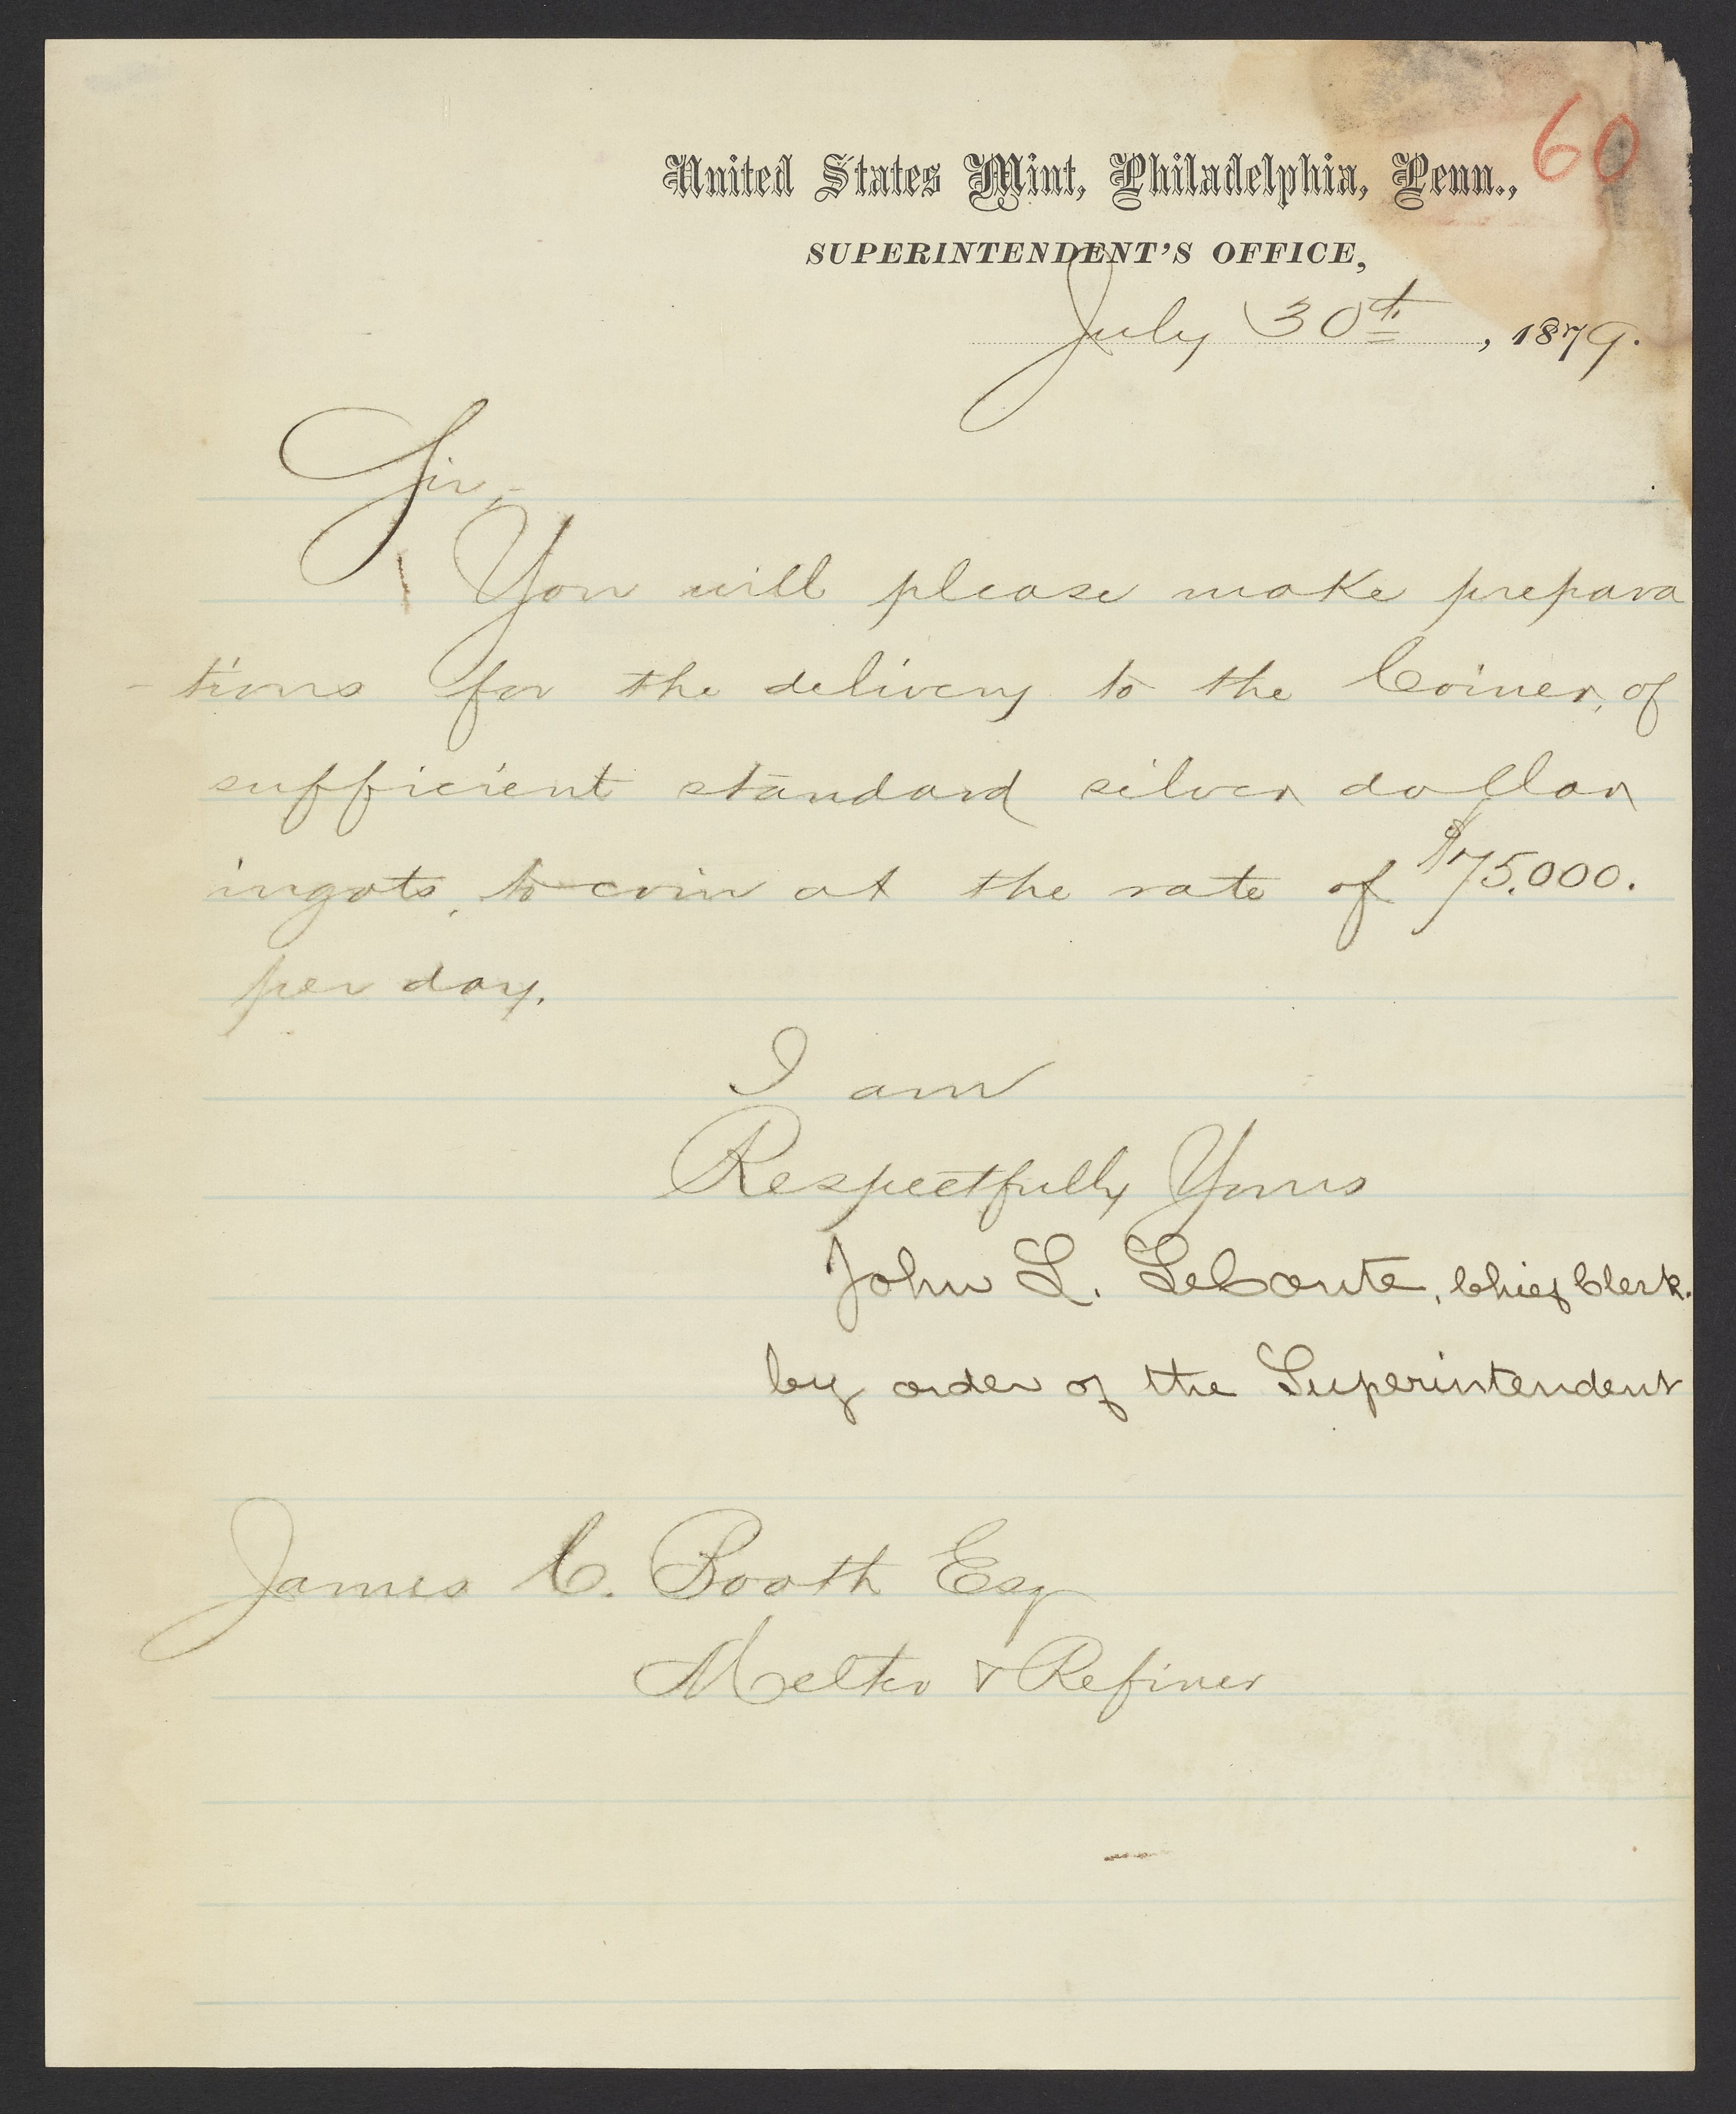 60
United States Mint, Philadelphia, Penn.,
SUPERINTENDENT'S OFFICE,
July 30th, 1879.
Sir,-
You will please make prepara
-tions for the delivery to the Coiner, of
sufficient standard silver dollar
ingots, to coin at the rate of $75.000.
per day.
I am
Respectfully Yours
John L. LeConte, Chief Clerk.
by order of the Superintendent
James C. Booth Esq
Melter & Refiner